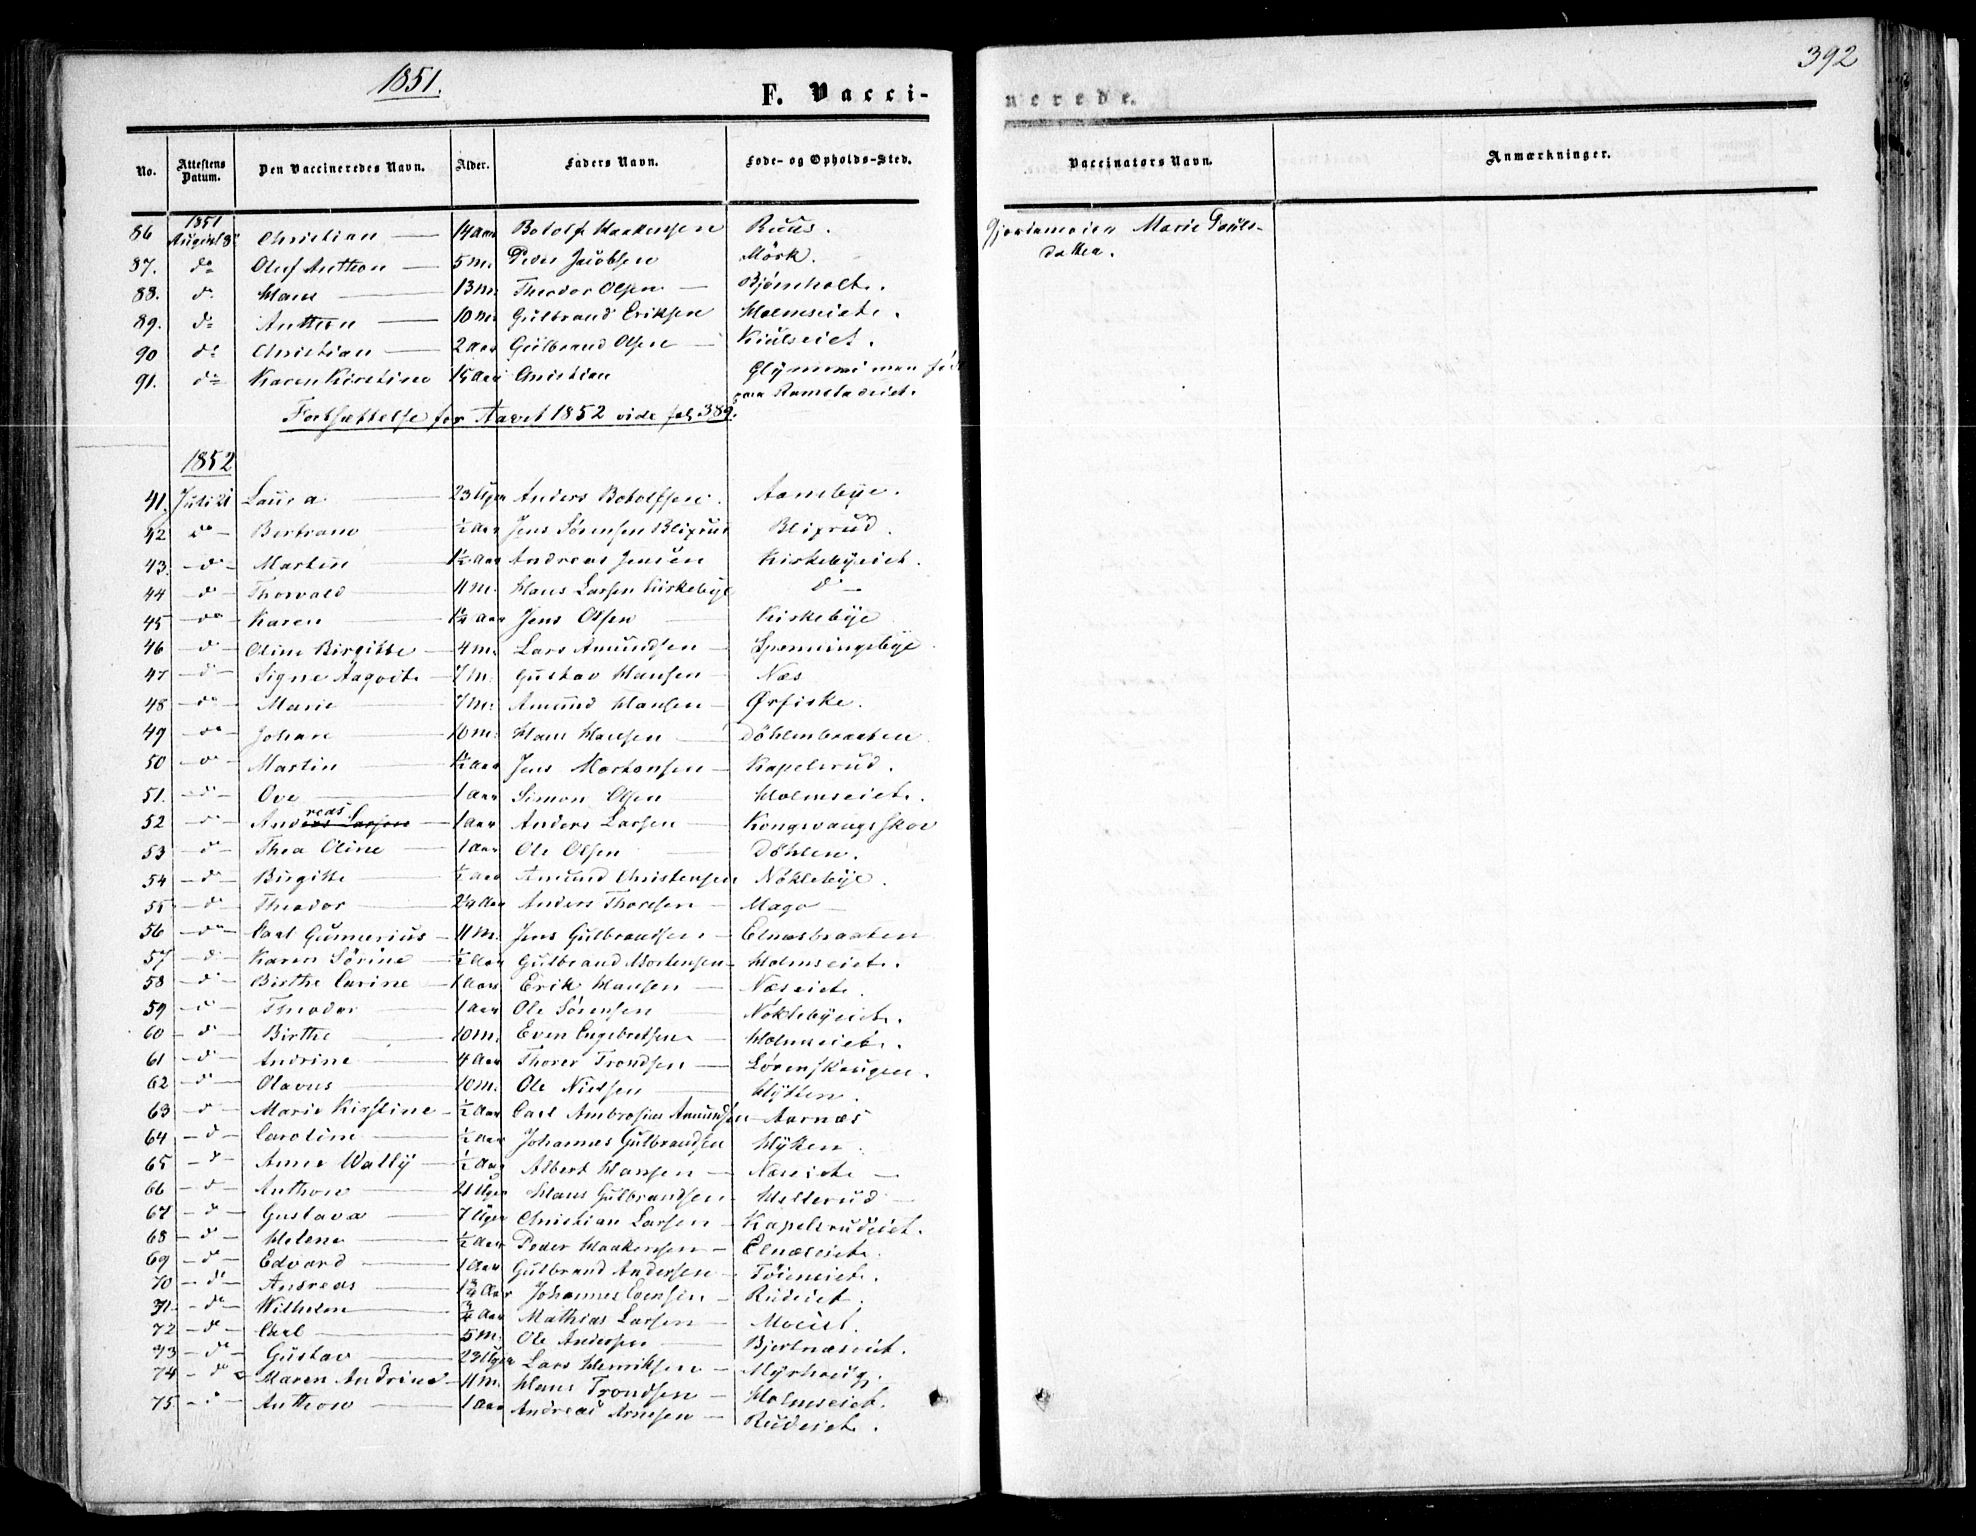 1851.
F. Vacci-
nerede.
392
No.
Attestens Datum.
Den Vaccineredes Navn.
Alder.
Faders Navn.
Føde- og Opholds-Sted.
Vaccinators Navn.
Anmærkninger.
1851
86 August 8 Christian 14 Aar Botolf Haakensen Ruus. Gjordemoder Marie Pouls-
datter.
87. do Oluf Anthon 5 m. Peder Jacobsen Mörk.
88. do Hans 13 m. Theodor Olsen Bjørnholt.
89. do Anthon 10 m. Gulbrand Eriksen Holmseiet.
90 do Christian 2 Aar Gulbrand Olsen Kiulseiet.
91. do Karen Kirstine 15 Aar Christian
paa Aamotseiet.
Fortsættelse for Aaret 1852 vide fol. 389.
1852
41. Juli 21 Laura 23 Uger Anders Botolfsen. Aambye.
42 do Bertram ½ Aar Jens Sørensen Blixrud Blixrud.
43. d Martin 1½ Aar Andreas Jensen Kirkebyeiet.
44 d Thorvald 4 M. Hans Larsen Kirkebye d
45 do Karen 1¼ Aar Jens Olsen Kirkebye
46 d Oline Birgitte 4 m. Lars Amundsen Spenningsbye
47 d Signe Aagot 7 m. Gustav Hansen Næs
48 do Marie 7 m. Amund Hansen Ørfiske.
49 do Johan 10 m. Hans Hansen Döhlenbraaten
50 d Martin 1½ Aar Jens Mortensen Kapelsrud.
51. d Ove 1 Aar Simon Olsen Holmseiet.
52 d Andreas 1 Aar Anders Larsen Kongsvangsskov
53 d Thea Oline 1 Aar Ole Olsen Döhlen.
54 d Birgitte ½ Aar Amund Christensen Nöklebye.
55 d Theodor 2¼ Aar Anders Thoresen Mago
56 do Carl Gunnerius 11 M. Jens Gulbrandsen Elnæsbraaten
57 d Karen Sörine ½ Aar Gulbrand Mortensen Holmseiet.
58 d Birthe Carine 1 Aar Erik Hansen Næseiet.
59 d Theodor 1 Aar Ole Sørensen Nöklebyeiet.
60 d Birthe 10 m. Even Engebretsen Holmseiet.
61 d Andrine 4 Aar Thorer Trondsen Lørenskaugen.
62 d Olavus 10 m. Ole Nielsen Hytten.
63 d Marie Kirstine ½ Aar Carl Ambrosius Amundsen Aarnæs
64 d Caroline ½ Aar Johannes Gulbrandsen Hytten
65 d Anne Wally ½ Aar Albert Hansen Næseiet
66 d Anthon 21 Uger Hans Gulbrandsen Hellerud
67 d Gustava 7 Uger Christian Larsen Kapelsrudeiet.
68 d Helene ½ Aar Peder Haakensen Elnæseiet.
69 d Edvard 1 Aar Gulbrand Andersen Töieneiet.
70 do Andreas 1¾ Aar Johannes Evensen Rudeiet.
71 do Wilhelm ¾ Aar Mathias Larsen Moeiet.
72 d Carl 5 m. Ole Andersen Bjertnæseiet.
73 do Gustav 23 Uger Lars Henriksen Myrhaug.
74 do Maren Andrine 11 m. Hans Trondsen Holmseiet.
75 d Anthon 1 Aar Andreas Arnesen Rudeiet.